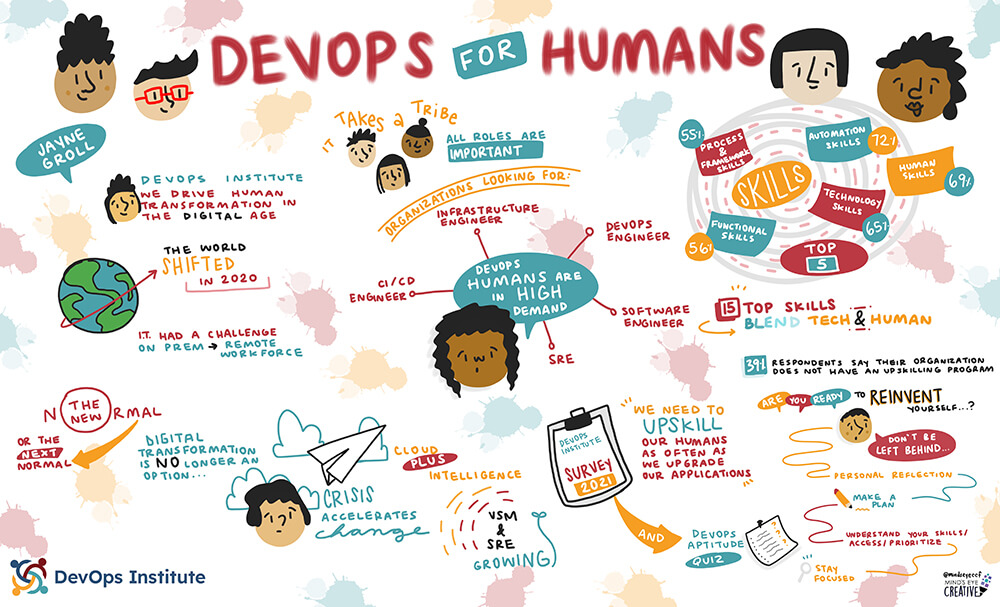 DEVOPS FOR HUMANS
JAYNE
GROLL
DEVOPS INSTITUTE
WE DRIVE HUMAN
TRANSFORMATION IN
THE DIGITAL AGE
THE WORLD
SHIFTED
IN 2020
I.T. HAD A CHALLENGE
ON PREM → REMOTE
WORKFORCE
IT TAKES a TRIBE
ALL ROLES ARE
IMPORTANT
ORGANIZATIONS LOOKING FOR:
INFRASTRUCTURE
ENGINEER
DEVOPS
ENGINEER
CI/CD
ENGINEER
DEVOPS
HUMANS ARE
IN HIGH
DEMAND
SOFTWARE
ENGINEER
SRE
55%
PROCESS
&
FRAMEWORK
SKILLS
AUTOMATION
SKILLS
72%
HUMAN
SKILLS
69%
SKILLS
TECHNOLOGY
SKILLS
65%
FUNCTIONAL
SKILLS
56%
TOP
5
15 TOP SKILLS
BLEND TECH & HUMAN
39% RESPONDENTS SAY THEIR ORGANIZATION
DOES NOT HAVE AN UPSKILLING PROGRAM
ARE YOU READY TO REINVENT
YOURSELF...?
DON'T BE
LEFT BEHIND...
PERSONAL REFLECTION
MAKE A
PLAN
UNDERSTAND YOUR SKILLS/
ACCESS/PRIORITIZE
STAY
FOCUSED
THE
NEW
NORMAL
OR THE
NEXT
NORMAL
DIGITAL
TRANSFORMATION
IS NO LONGER AN
OPTION...
CRISIS
ACCELERATES
change
CLOUD
PLUS
INTELLIGENCE
VSM
&
SRE
GROWING
DEVOPS
INSTITUTE
SURVEY
2021
"WE NEED TO
UPSKILL
OUR HUMANS
AS OFTEN AS
WE UPGRADE
OUR APPLICATIONS"
AND
DEVOPS
APTITUDE
QUIZ
DevOps Institute
@mindseyeccf
MIND'S EYE
CREATIVE